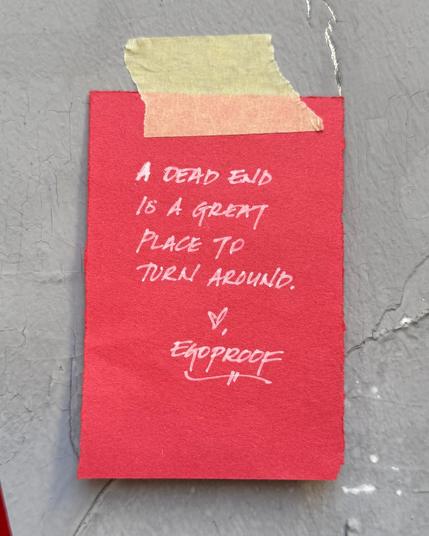 A DEAD END
IS A GREAT
PLACE TO
TURN AROUND.
♡,
EGOPROOF